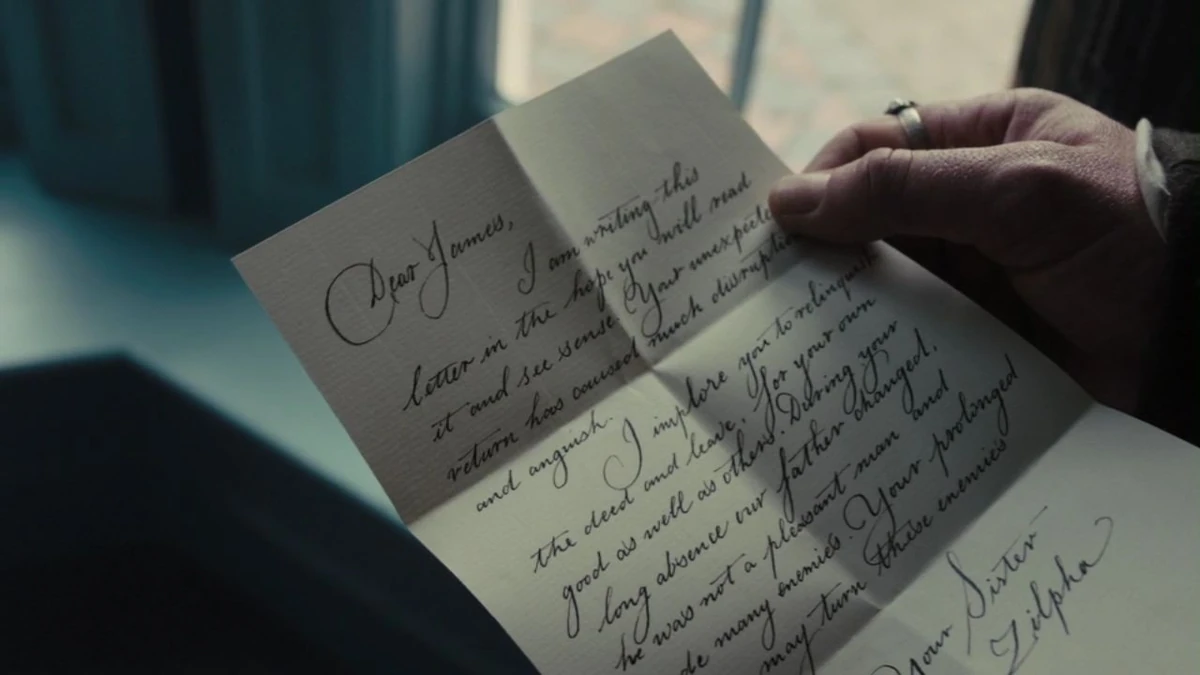 Dear James,
I am writing this
letter in the hope you will read
it and see sense. Your unexpecte
return has caused much disruptio
and anguish.
I implore you to relinquish
the deed and leave, for your own
good as well as others. During your
long absence our father changed,
he was not a pleasant man and
de many enemies. Your prolonged
may turn these enemies
Your Sister
Zilpha